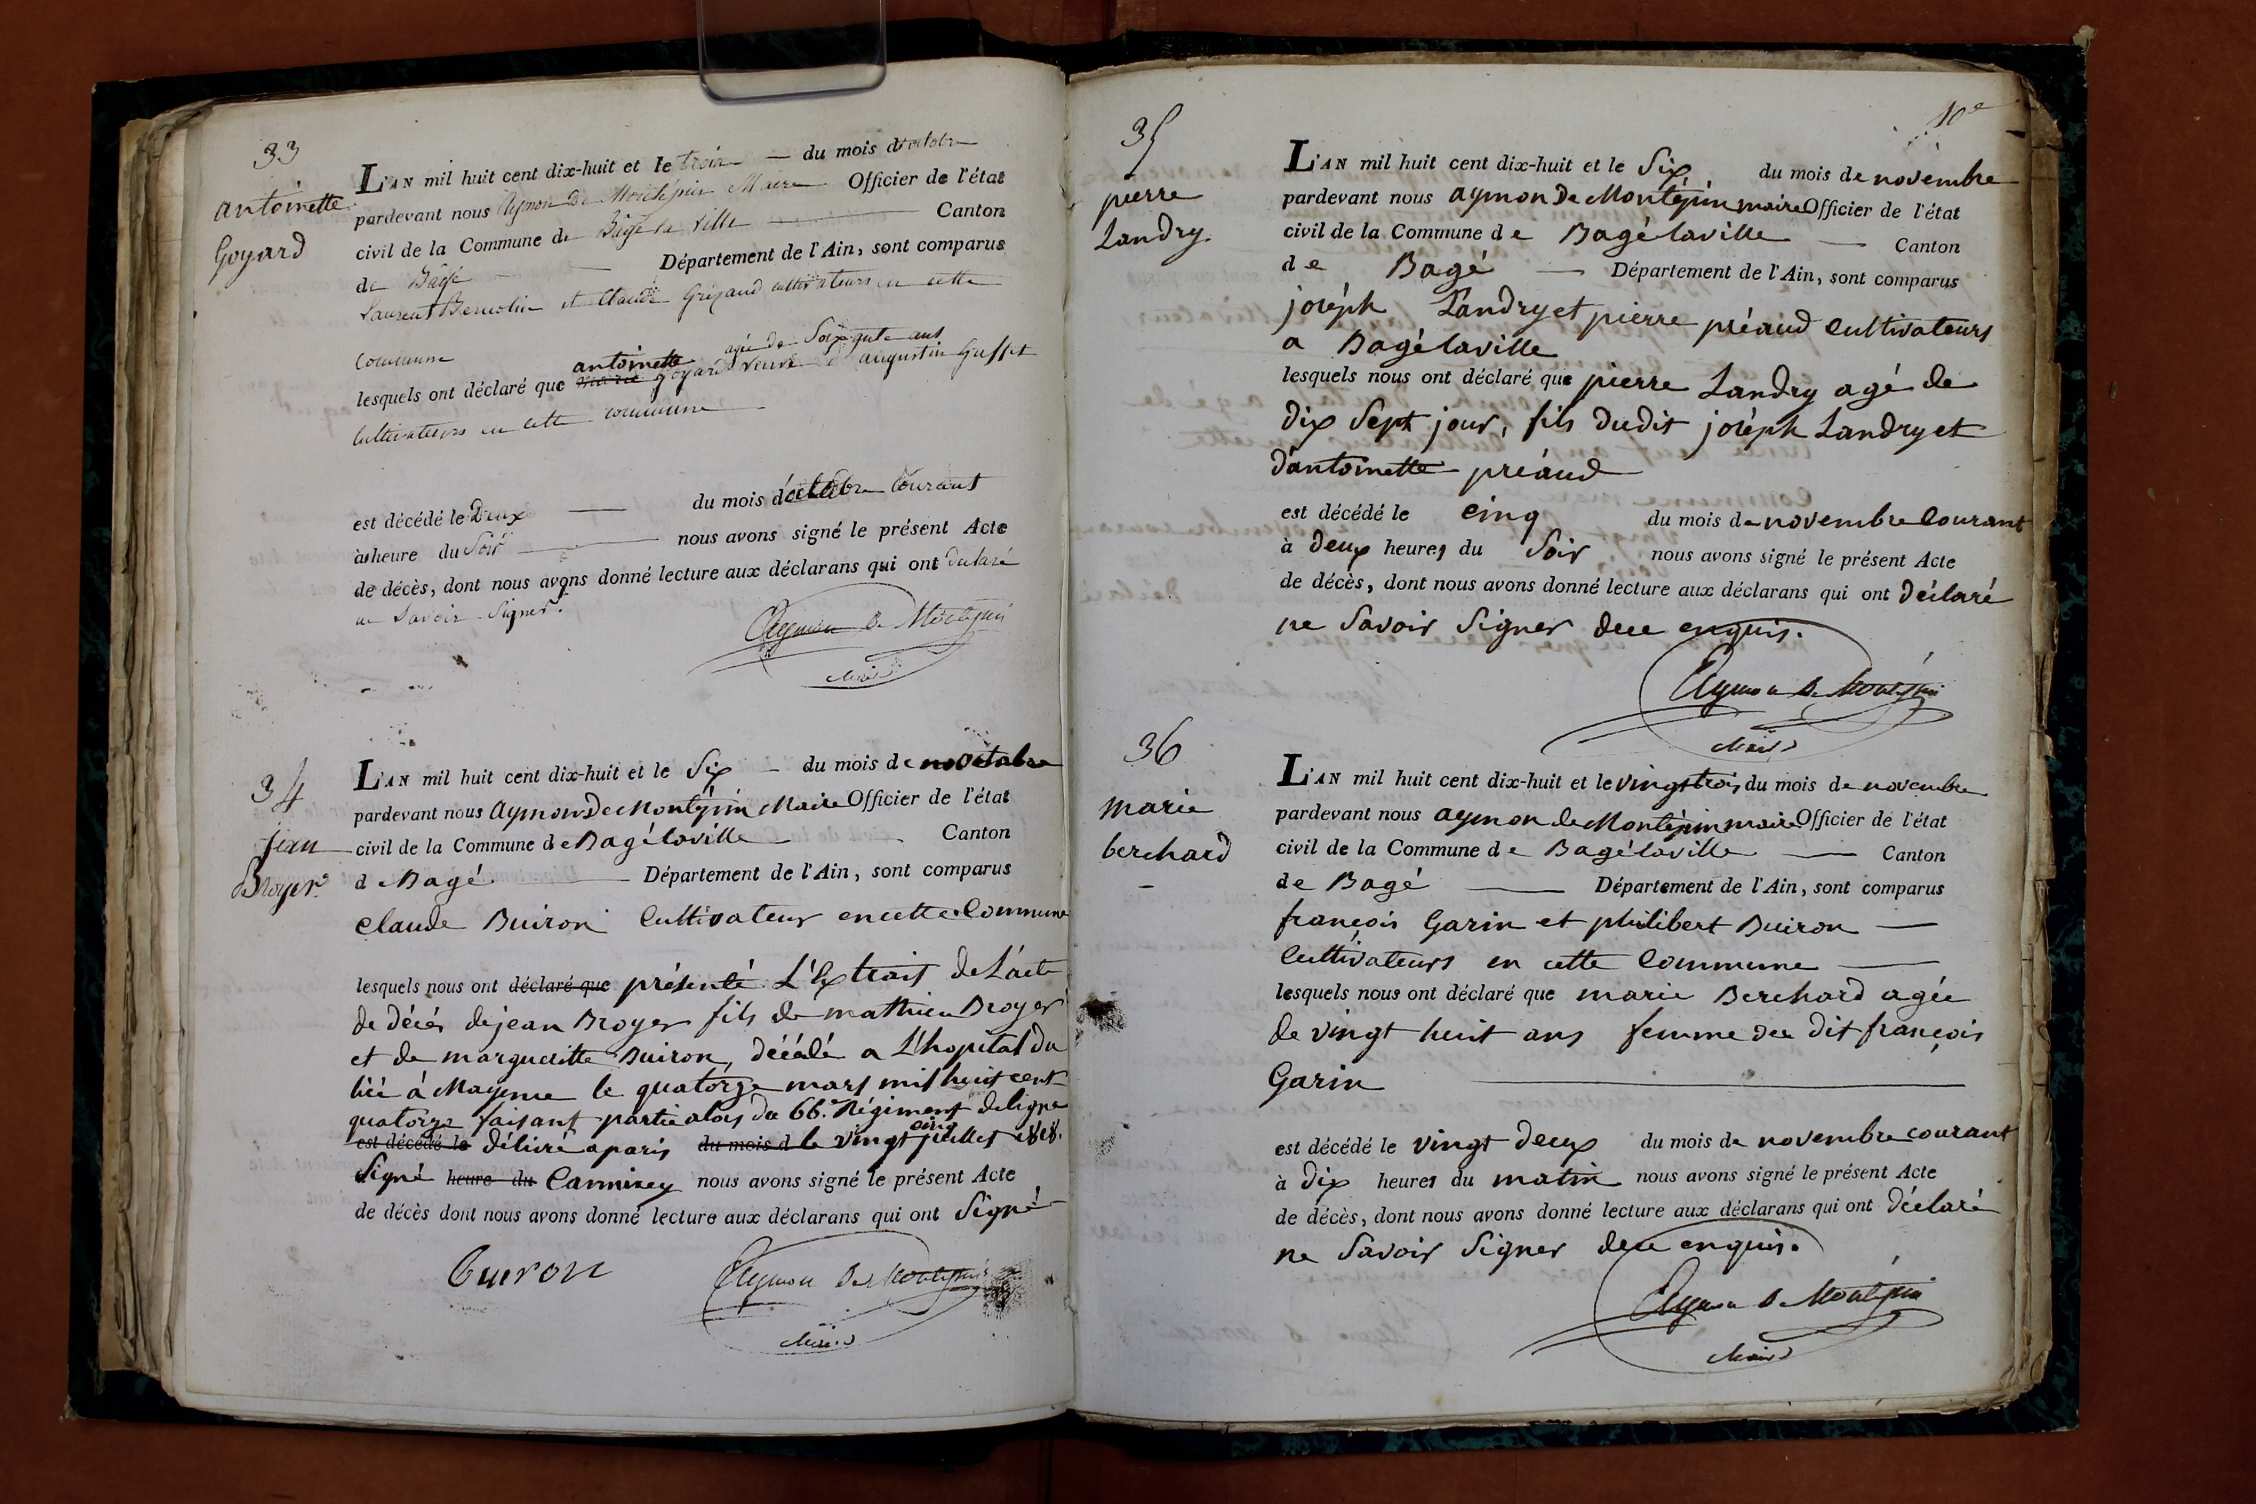 33
antoinette
Goyard
L'AN mil huit cent dix-huit et le trois du mois d'octobre
pardevant nous Aymon De Montépin Maire Officier de l'état
civil de la Commune de Bâgé la ville Canton
de Bâgé Département de l'Ain, sont comparus
Laurent et Claude cultivateurs en cette
commune
agée de Soixante ans
antoinette
lesquels ont déclaré que marie goyard veuve d'augustin
Cultivateurs en cette commune
est décédé le Deux du mois d'octobre Courant
à heure du Soir nous avons signé le présent Acte
de décès, dont nous avons donné lecture aux déclarans qui ont declaré
ne Savoir Signer.
Aymon De Montépin
Maire
34
jean
Broyer
L'AN mil huit cent dix-huit et le Six du mois de
pardevant nous aymon De Montépin Maire Officier de l'état
civil de la Commune de Bagélaville Canton
de Bagé Département de l'Ain, sont comparus
Claude Buiron Cultivateur en cette Commune
lesquels nous ont déclaré que présenté L'Extrait de L'acte
de décés de jean Broyer fils de mathieu Broyer
et de margueritte Buiron, décédé a L'hopital du
lieu à Mayence le quatorze mars mil huit cent
quatorze faisant partie alors du 66.e Régiment de ligne
cinq
est décédé le délivré a paris du mois d le vingt juillet 1818.
Signé heure du nous avons signé le présent Acte
de décès dont nous avons donné lecture aux déclarans qui ont Signé
Buiron
Aymon De Montépin
Maire
10e
35
pierre
Landry
L'AN mil huit cent dix-huit et le Six du mois de novembre
pardevant nous aymon De Montépin maire Officier de l'état
civil de la Commune de Bagélaville Canton
de Bagé Département de l'Ain, sont comparus
joséph Landry et pierre préaud Cultivateurs
a Bagélaville
lesquels nous ont déclaré que pierre Landry agé de
dix Sept jour, fils dudit joséph Landry et
d'antoinette préaud
est décédé le cinq du mois de novembre Courant
à deux heures du Soir nous avons signé le présent Acte
de décès, dont nous avons donné lecture aux déclarans qui ont déclaré
ne Savoir Signer de ce enquis.
Aymon De Montépin
Maire
36
marie
berchard
L'AN mil huit cent dix-huit et le vingt trois du mois de novembre
pardevant nous aymon de Montépin maire Officier de l'état
civil de la Commune de Bagélaville Canton
de Bagé Département de l'Ain, sont comparus
françois Garin et philibert Buiron
Cultivateurs en cette Commune
lesquels nous ont déclaré que marie Berchard agée
de vingt huit ans femme du dit françois
Garin
est décédé le vingt deux du mois de novembre courant
à dix heures du matin nous avons signé le présent Acte
de décès, dont nous avons donné lecture aux déclarans qui ont déclaré
ne Savoir Signer de ce enquis.
Aymon De Montépin
Maire